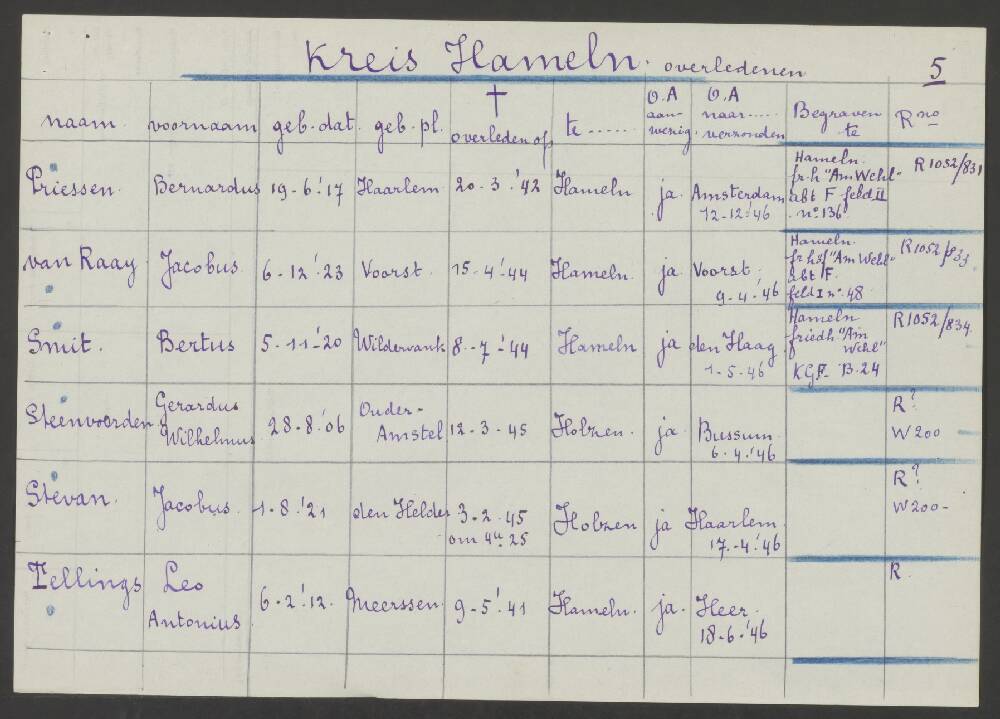 Kreis Hameln. overledenen 5
naam. voornaam geb. dat. geb. pl. † overleden op te ...... O.A aanwezig. O.A naar..... verzonden Begraven te R no
Priessen. Bernardus 19-6-'17 Haarlem 20-3-'42 Hameln ja. Amsterdam 12-12-'46 Hameln. fr.h "Am Wehl" abt F feld II no 136 R1052/831
van Raay Jacobus. 6-12-'23 Voorst. 15-4-'44 Hameln ja Voorst. 9-4-'46 Hameln. fr hof "Am Wehl" abt F. feld I no. 48 R1052/833
Smit. Bertus 5-11-'20 Wildervank 8-7-'44 Hameln ja den Haag 1-5-'46 Hameln friedh "Am Wehl" KGF. B.24 R1052/834
Steenvoorden Gerardus Wilhelmus 28-8-'06 Ouder-Amstel 12-3-45 Holzen. ja. Bussum 6-4-'46 R? W200
Stevan. Jacobus. 1-8-'21 den Helder 3-2-45 om 4u 25 Holzen ja Haarlem. 17-4-'46 R? W200-
Tellings Leo Antonius 6-2-'12. Meerssen. 9-5-'41 Hameln. ja. Heer. 18-6-'46 R.